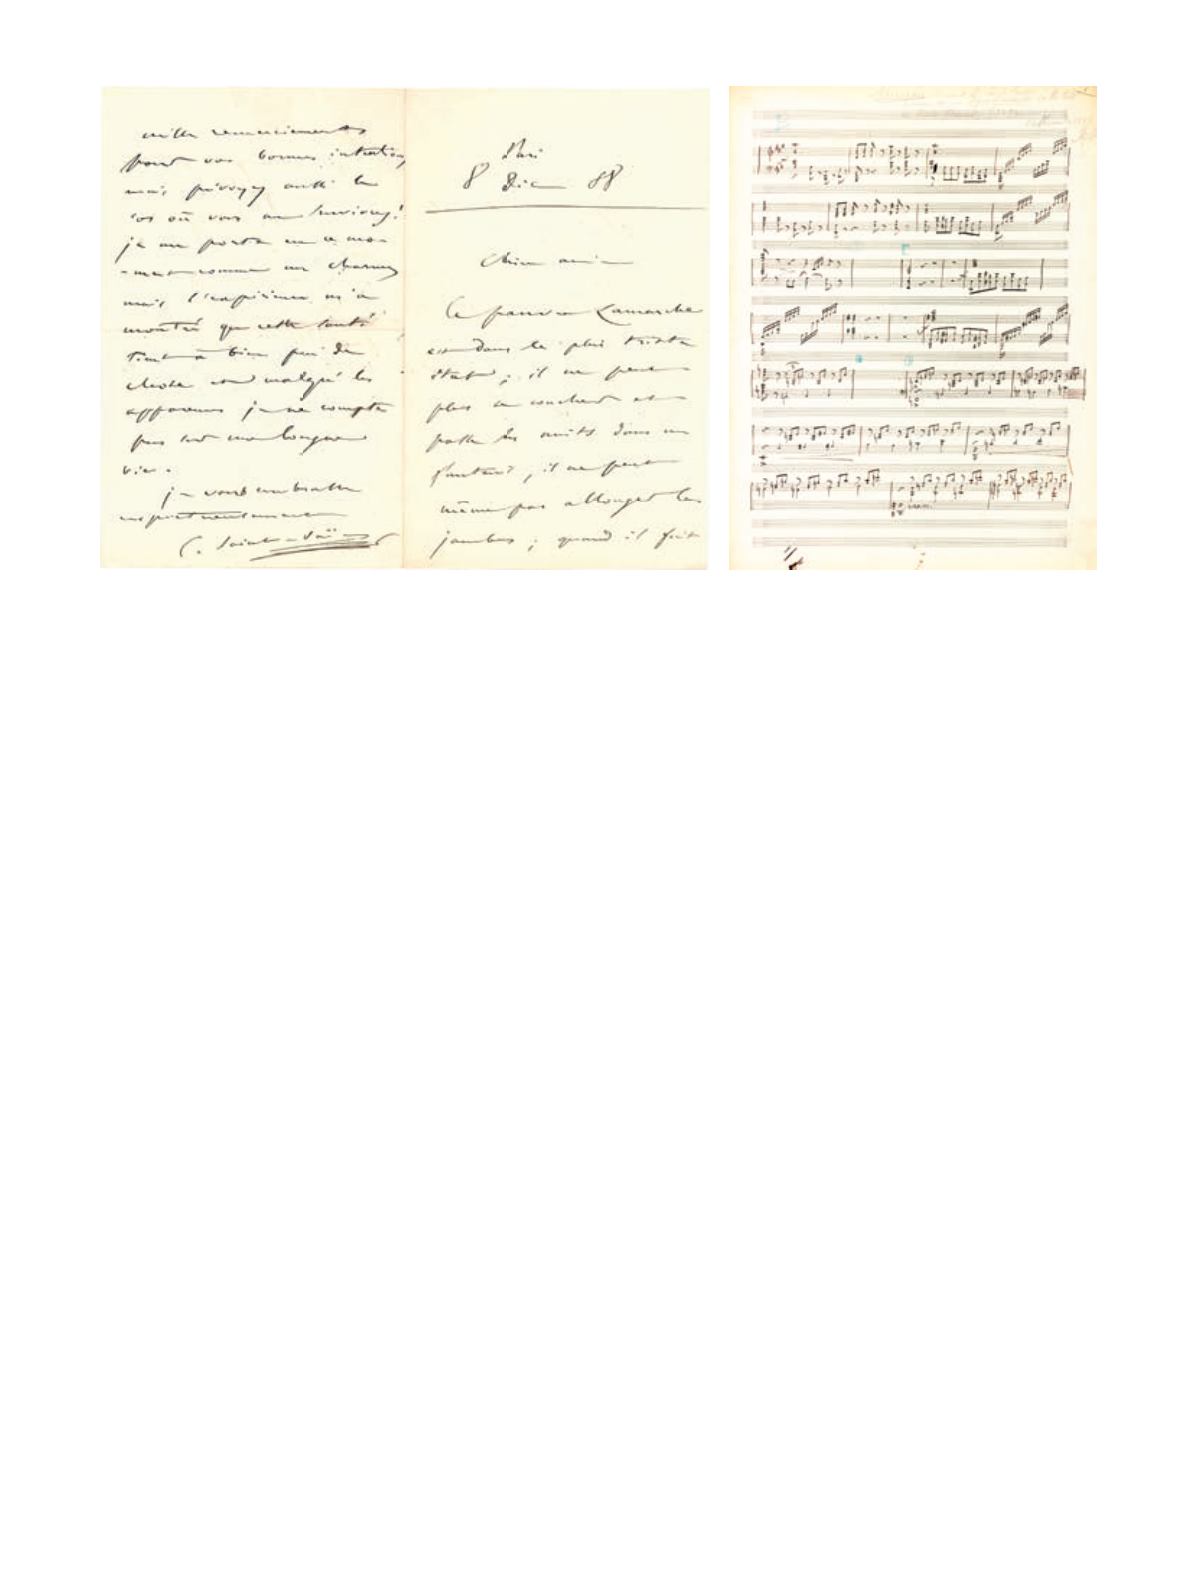 mille remerciements
pour vos bonnes intentions
mais prévoyez aussi le
cas où vous me survivrez!
je me porte en ce mo-
-ment comme un charme
mais l'expérience m'a
montré que cette santé
tient à bien peu de
chose et malgré les
apparences je ne compte
pas sur une longue
vie.
je vous embrasse
respectueusement
C. Saint-Saëns
8 Déc 88
Chère amie
Ce pauvre Lamarche
est dans le plus triste
état; il ne peut
plus se coucher et
passe les nuits dans un
fauteuil, il ne peut
même pas allonger les
jambes; quand il fait